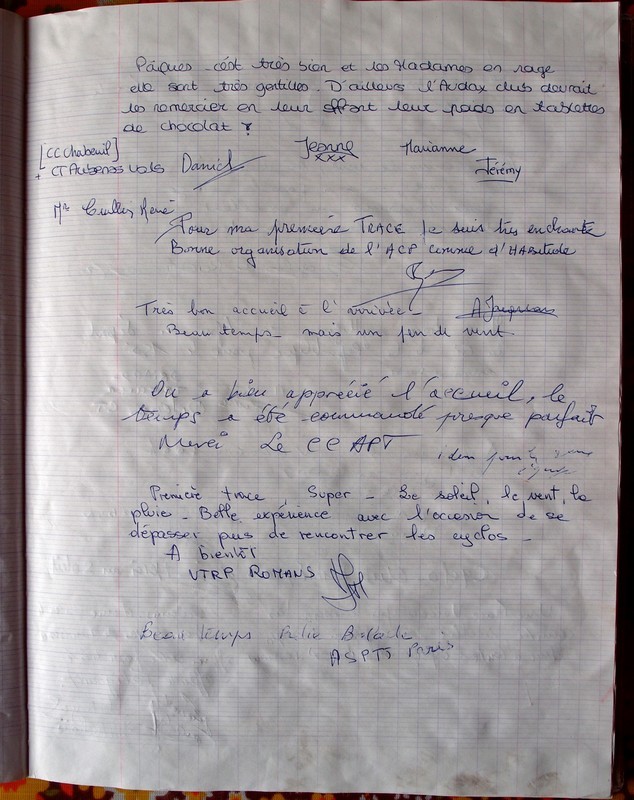 Pâques c'est très bien et les Madames en rage
elle sont très gentilles. D'ailleurs l'Audax club devrait
les remercier en leur offrant leur poids en tablettes
de chocolat
[CC Chabeuil]
+ CT Aubenas vals Daniel Jeanne xxx Marianne Jérémy
Mr René
Pour ma première TRACE Je suis très enchanté
Bonne organisation de l'ACP comme d'HABitude
Très bon accueil à l'arrivée
Beau temps mais un peu de vent.
On a bien apprécié l'accueil, le
temps a été commandé presque parfait
Merci Le CCAPT
Première trace, Super - Le soleil, le vent, la
pluie - Belle expérience avec l'occasion de se
dépasser puis de rencontrer les cyclos -
A bientôt
VTRP ROMANS
Beau temps
ASPTT Paris